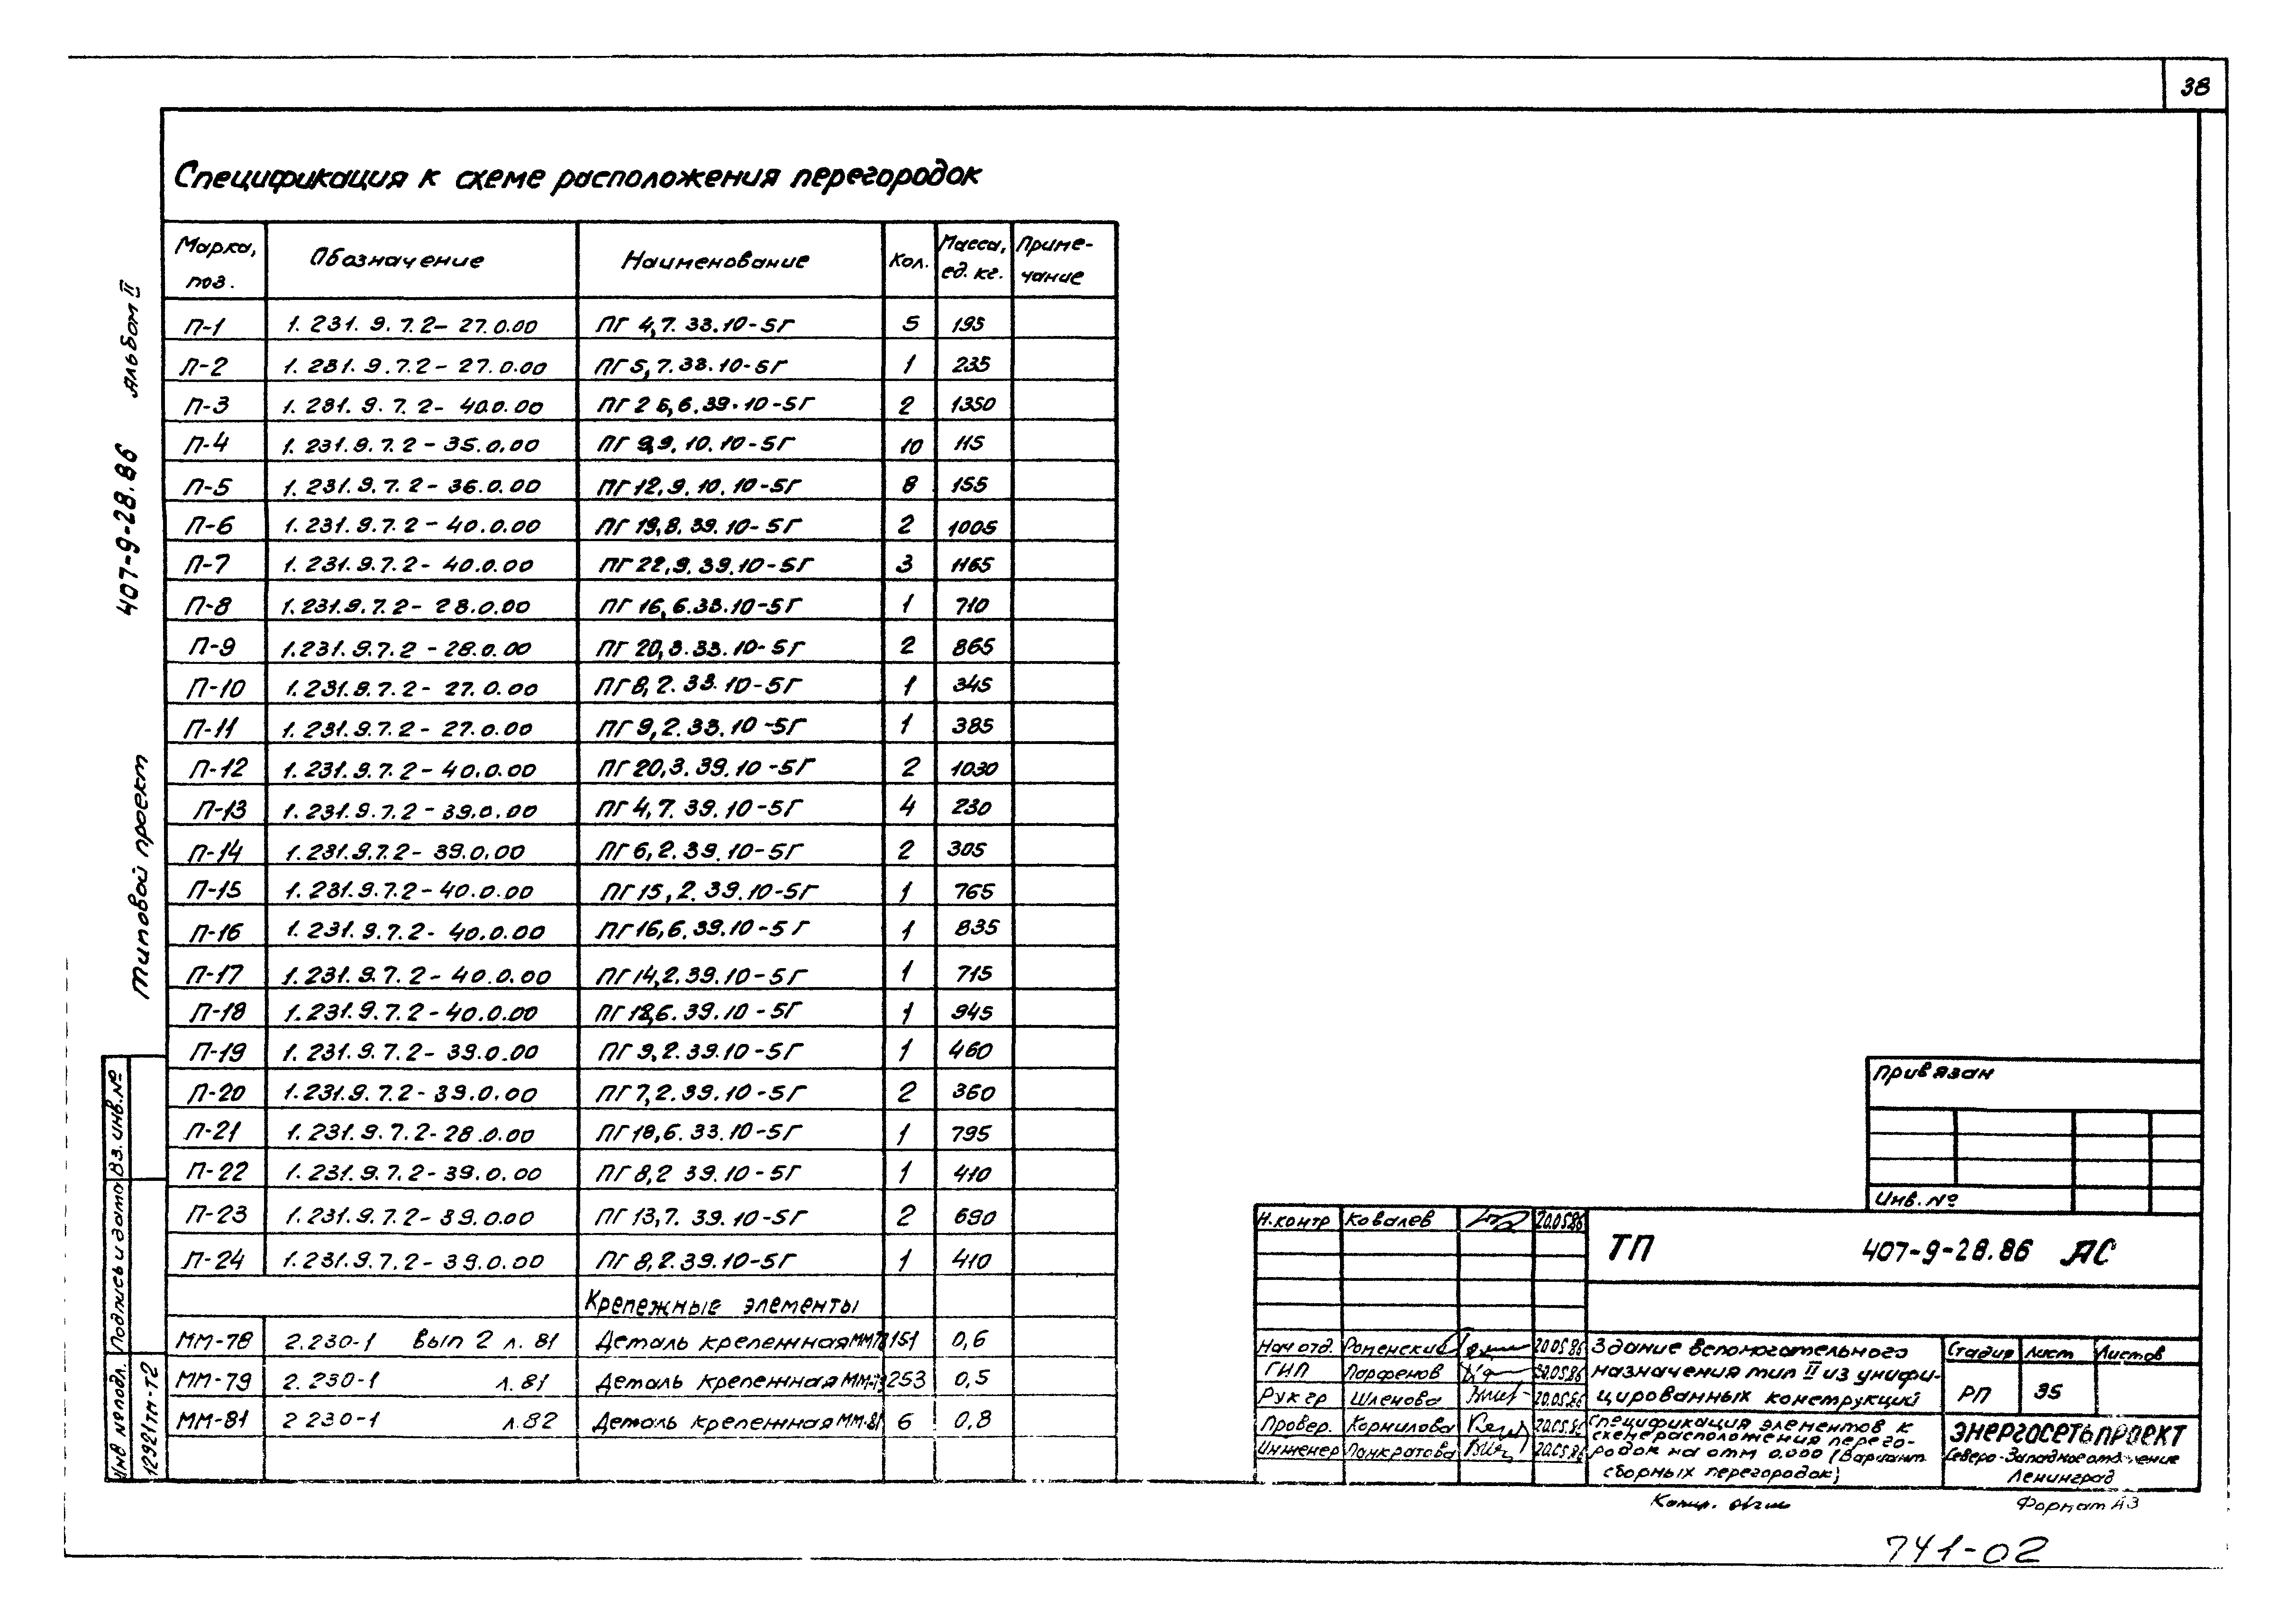 38
Спецификация к схеме расположения перегородок
Марка, поз. Обозначение Наименование Кол. Масса, ед. кг. Приме-чание
П-1 1.231.9.7.2-27.0.00 ПГ 4,7.33.10-5Г 5 195
П-2 1.231.9.7.2-27.0.00 ПГ 5,7.33.10-5Г 1 235
П-3 1.231.9.7.2-40.0.00 ПГ 26,6.39.10-5Г 2 1350
П-4 1.231.9.7.2-35.0.00 ПГ 9,9.10.10-5Г 10 115
П-5 1.231.9.7.2-36.0.00 ПГ 12,9.10.10-5Г 8 155
П-6 1.231.9.7.2-40.0.00 ПГ 19,8.39.10-5Г 2 1005
П-7 1.231.9.7.2-40.0.00 ПГ 22,9.39.10-5Г 3 1165
П-8 1.231.9.7.2-28.0.00 ПГ 16,6.33.10-5Г 1 710
П-9 1.231.9.7.2-28.0.00 ПГ 20,3.33.10-5Г 2 865
П-10 1.231.9.7.2-27.0.00 ПГ 8,2.33.10-5Г 1 345
П-11 1.231.9.7.2-27.0.00 ПГ 9,2.33.10-5Г 1 385
П-12 1.231.9.7.2-40.0.00 ПГ 20,3.39.10-5Г 2 1030
П-13 1.231.9.7.2-39.0.00 ПГ 4,7.39.10-5Г 4 230
П-14 1.231.9.7.2-39.0.00 ПГ 6,2.39.10-5Г 2 305
П-15 1.231.9.7.2-40.0.00 ПГ 15,2.39.10-5Г 1 765
П-16 1.231.9.7.2-40.0.00 ПГ 16,6.39.10-5Г 1 835
П-17 1.231.9.7.2-40.0.00 ПГ 14,2.39.10-5Г 1 715
П-18 1.231.9.7.2-40.0.00 ПГ 18,6.39.10-5Г 1 945
П-19 1.231.9.7.2-39.0.00 ПГ 9,2.39.10-5Г 1 460
П-20 1.231.9.7.2-39.0.00 ПГ 7,2.39.10-5Г 2 360
П-21 1.231.9.7.2-28.0.00 ПГ 18,6.33.10-5Г 1 795
П-22 1.231.9.7.2-39.0.00 ПГ 8,2 39.10-5Г 1 410
П-23 1.231.9.7.2-39.0.00 ПГ 13,7.39.10-5Г 2 690
П-24 1.231.9.7.2-39.0.00 ПГ 8,2.39.10-5Г 1 410
Крепежные элементы
ММ-78 2.230-1 Вып 2 л. 81 Деталь крепежная ММ-78 151 0,6
ММ-79 2.230-1 л. 81 Деталь крепежная ММ-79 253 0,5
ММ-81 2 230-1 л. 82 Деталь крепежная ММ-81 6 0,8
Типовой проект 407-9-28.86 Альбом II
Инв № подл. Подпись и дата Вз. инв. №
12921тм-т2
Привязан
Инв. №
Н. контр Ковалев 20.05.86
Нач отд. Роменский 20.05.86
ГИП Парфенов 20.05.86
Рук гр Шленова 20.05.86
Провер. Корнилова 20.05.86
Инженер Панкратова 20.05.86
ТП 407-9-28.86 АС
Здание вспомогательного
назначения тип II из унифи-
цированных конструкций
Стадия Лист Листов
РП 35
Спецификация элементов к
схеме расположения перего-
родок на отм 0.000 (Вариант
сборных перегородок)
ЭНЕРГОСЕТЬПРОЕКТ
Северо-Западное отделение
Ленинград
Копир.
Формат А3
741-02